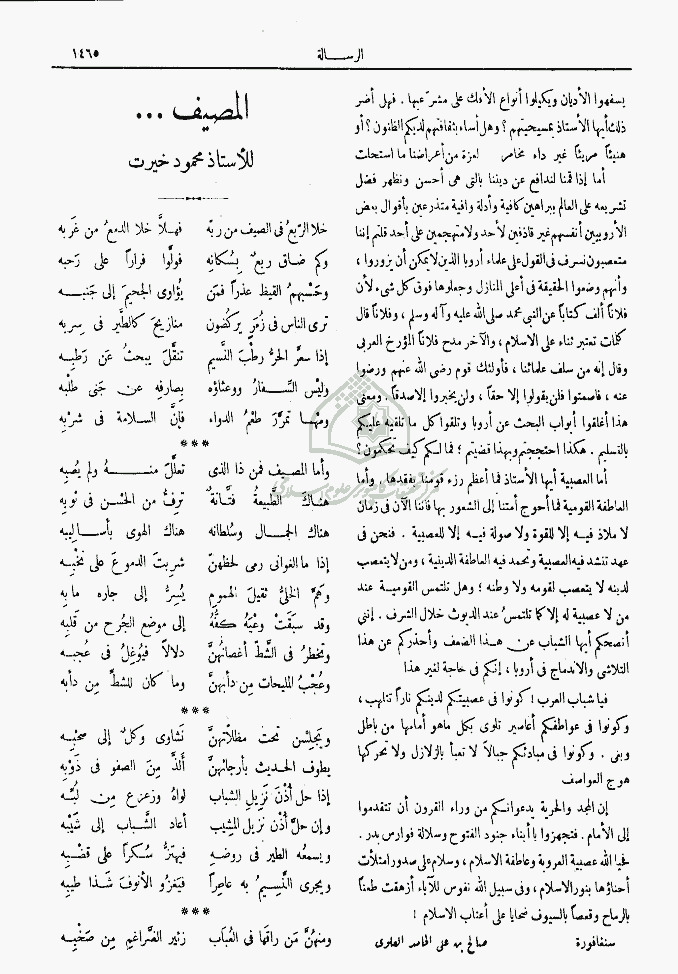 الرسـالة
١٤٦٥
يسفهوا الأديان ويكيلوا أنواع الأفك على مشرعيها . فهل أضر
ذلك أيها الأستاذ بمسيحيتهم ؟ وهل أساء بثقافتهم لديكم الظنون ؟ أو
هنيئاً مريئاً غير داء مخامر لعزة من أعراضنا ما استحلت
أما إذا قمنا لندافع عن ديننا بالتى هى أحسن ونظهر فضل
تشريعه على العالم ببراهين كافية وأدلة وافية متذرعين بأقوال بعض
الأروبيين أنفسهم غير قاذفين لأحد ولا متهجمين على أحد قلتم إننا
متعصبون نسرف فى القول على علماء أروبا الذين لا يمكن أن يزوروا ،
وأنهم وضعوا الحقيقة فى أعلى المنازل وجعلوها فوق كل شىء لأن
فلاناً ألف كتاباً عن النبى محمد صلى الله عليه وآله وسلم ، وفلاناً قال
كلمات تعتبر ثناء على الاسلام ، والآخر مدح فلاناً المؤرخ العربى
وقال إنه من سلف علمائنا ، فأولئك قوم رضى الله عنهم ورضوا
عنه ، فاصمتوا فلن يقولوا إلا حقاً ، ولن يخبروا إلا صدقاً . ومعنى
هذا أغلقوا أبواب البحث عن أروبا وتلقوا كل ما تلقيه عليكم
بالتسليم . هكذا احتججتم وبهذا قضيتم ؛ فما لكم كيف تحكمون ؟
أما العصبية أيها الأستاذ فما أعظم رزء قومنا بفقدها ، وأما
العاطفة القومية فما أحوج أمتنا إلى الشعور بها فاننا الآن فى زمان
لا ملاذ فيه إلا للقوة ولا صولة فيه إلا للعصبية . فنحن فى
عهد تنشد فيه العصبية وتحمد فيه العاطفة الدينية ، ومن لا يتعصب
لدينه لا يتعصب لقومه ولا وطنه ؛ وهل تلتمس القومية عند
من لا عصبية له إلا كما تلتمسُ عند الديوث خلال الشرف . إننى
أنصحكم أيها الشباب عن هذا الضعف وأحذركم عن هذا
التلاشى والاندماج فى أروبا ، إنكم فى حاجة لغير هذا
فيا شباب العرب ! كونوا فى عصبيتكم لدينكم ناراً تتلهب ،
وكونوا فى عواطفكم أعاصير تلوى بكل ماهو أمامها من باطل
وبغى . وكونوا فى مبادئكم جبالاً لا تعبأ بالزلازل ولا تحركها
هوج العواصف
إن المجد والحرية يدعوانكم من وراء القرون أن تتقدموا
إلى الأمام . فتجهزوا يا أبناء جنود الفتوح وسلالة فوارس بدر .
فحيا الله عصبية العروبة وعاطفة الاسلام ، وسلام على صدور امتلأت
أحناؤها بنور الاسلام ، وفى سبيل الله نفوس للآباء أزهقت طعناً
بالرماح وقعصاً بالسيوف ضحايا على أعتاب الاسلام !
سنغافورة صالح بن على الحامد العلوى
المصيف ...
للأستاذ محمود خيرت
خلا الرّبعُ فى الصيف من ربّه فهلاَّ خلا الدمعُ من غَربه
وكم ضاق ربعٌ بسُكانِه فولَّوا فراراً على رَحبه
وحَسْبهمُ القيظ عذراً فمَن يُؤاوى الجحيمَ إلى جَنبه
ترى الناس فى زُمَرٍ يركُضون منازيحَ كالطَّير فى سِربه
إذا سعَّر الحرُّ رطْبَ النَّسيم تنقَّل يبحثُ عَن رَطبِه
وليْس السِّفارُ ووعثاؤه بصارفِه عن جَنى طلْبه
ومهْما تمرَّرَ طعْمُ الدواء فإنَّ السلامة فى شربه
***
وأما المصيف فمن ذا الذى تعلَّل منه ولم يُصبِه
هناك الطَّبيعةُ فتَّانةٌ ترِفُّ من الحُسن فى ثوبِه
هناك الجمال وسُلطانه هناك الهوى بأساليبه
إذا ما الغوانى رمى لحظهنّ شربتَ الدموعَ على نخْبِه
وكمَّ الخلىُّ ثقيلَ الهمومِ يُسِرُّ إلى جاره مابِه
وقد سبَقَتْ وعْيَهُ كفُّهُ إلى موضعِ الجُرح من قلبِه
وتخطرُ فى الشَّطّ أغصانُهنَّ دلالاً فيُوغِلُ فى عُجبِه
وعُجْبُ المليحات مِن دأبهنَّ وما كان للشطّ مِن دأبه
***
ويجلِسْن تحتَ مظلاَّتهنَّ نشاوى وكلٌّ إلى صحْبِه
يطوف الحديث بأرجائهنَّ ألذَّ مِنَ الصفو فى ذَوْبِه
إذا حل أذْنَ نَزيلِ الشباب لواهُ وزعزع مِن لُبِّه
وإن حلَّ أذْن نزيل المشِيب أعاد الشَّباب إلى شَيْبِه
ويسمعُه الطير فى روضِه فيهتزُّ سُكراً على قضْبِه
ويجرى النَّسِيمُ به عاطِراً فيَغزُو الأنوفَ شَذا طيبِه
***
ومنهُنَّ مَن راقها فى العُبَاب زئير الضَّراغمِ مِن صَخبِه